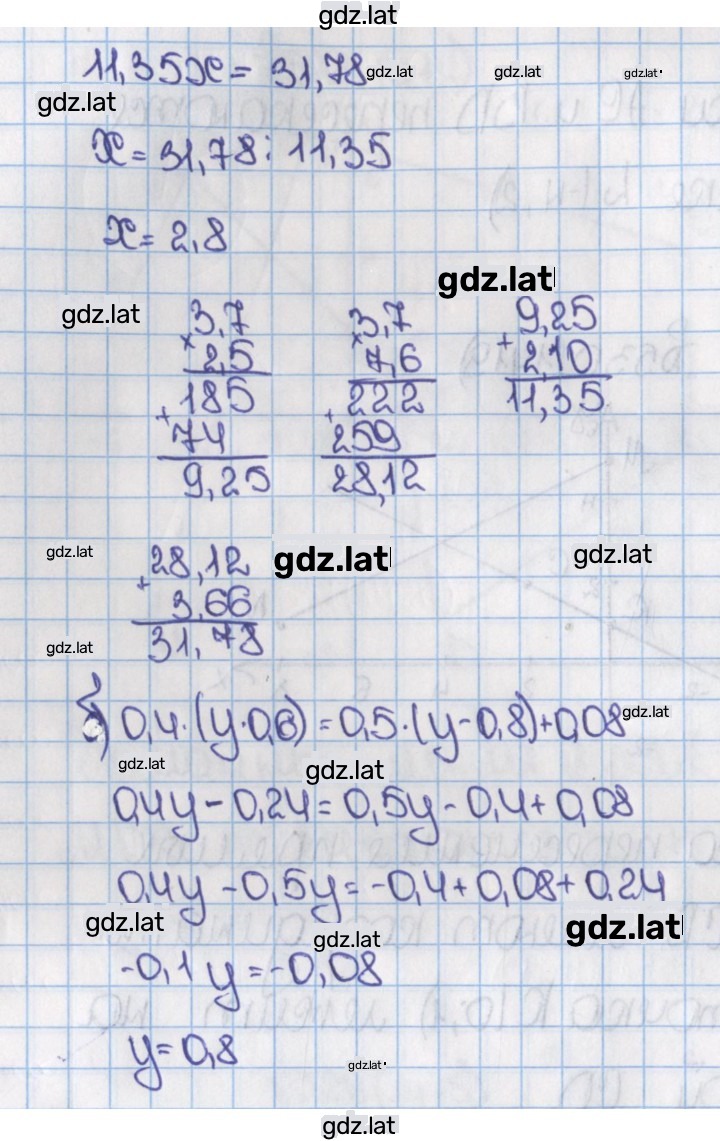 gdz.lat
11,35x = 31,78 gdz.lat gdz.lat gdz.lat
gdz.lat
x = 31,78 : 11,35
x = 2,8
gdz.lat
gdz.lat
3,7 3,7 9,25
× 2,5 × 7,6 + 2,10
185 222 11,35
+ 74 + 259
9,25 28,12
gdz.lat gdz.lat gdz.lat
28,12
+ 3,66
31,78
gdz.lat
б) 0,4·(y·0,6) = 0,5·(y-0,8)+0,08 gdz.lat
gdz.lat gdz.lat
0,4y - 0,24 = 0,5y - 0,4 + 0,08
0,4y - 0,5y = -0,4 + 0,08 + 0,24
gdz.lat gdz.lat gdz.lat
-0,1y = -0,08
y = 0,8
gdz.lat
gdz.lat